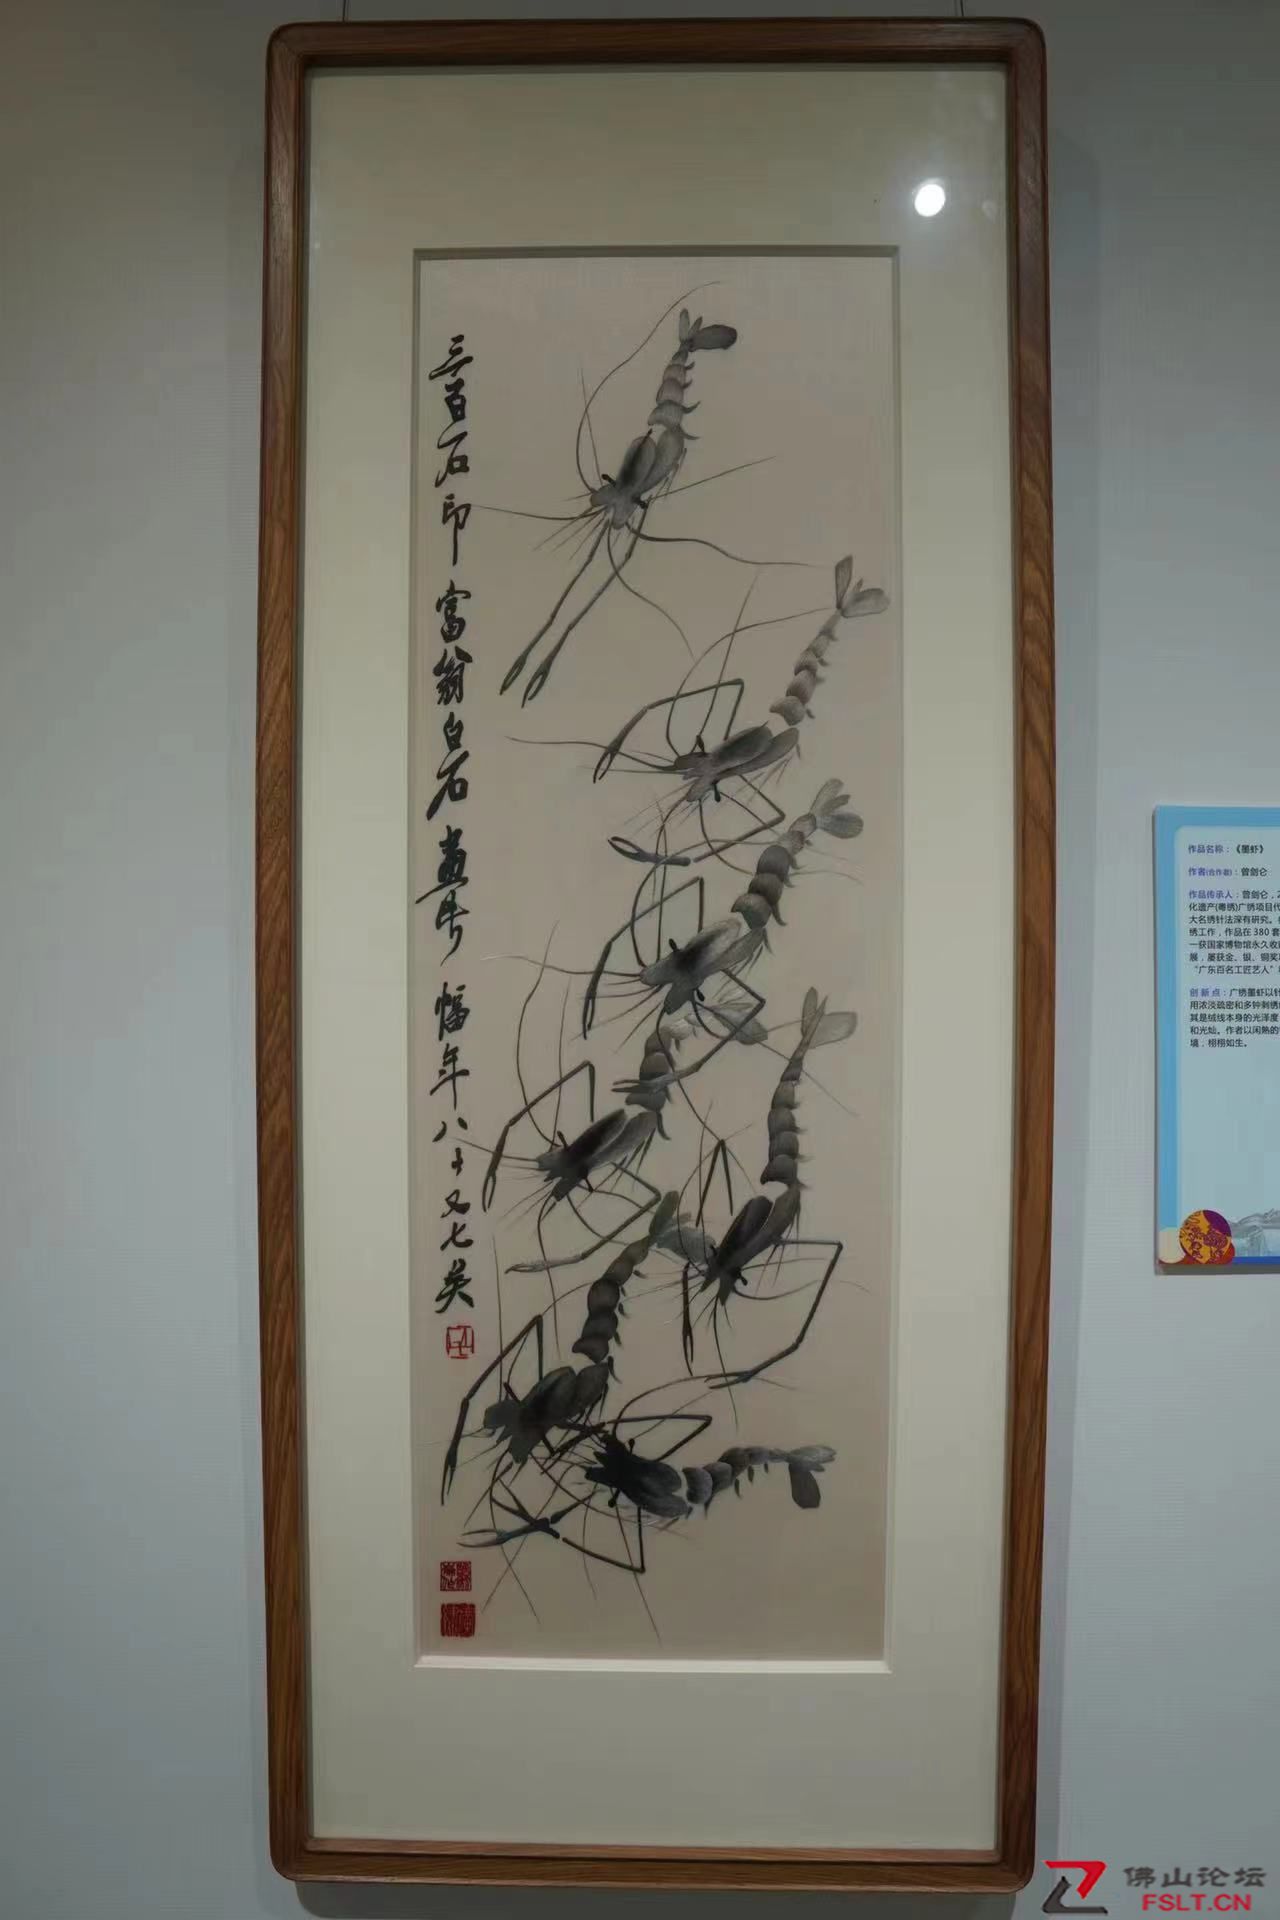 三百石印富翁白石画第
幅年八十又七矣
作品名称：《墨虾》
作者(合作者)：曾剑仑
作品传承人：曾剑仑，2
化遗产(粤绣)广绣项目代
大名绣针法深有研究。
绣工作，作品在 380 套
一获国家博物馆永久收
展，屡获金、银、铜奖
“广东百名工匠艺人”
创 新 点：广绣墨虾以针
用浓淡疏密和多钟刺绣
其是绒线本身的光泽度
和光灿。作者以闲熟的
境，栩栩如生。
佛山论坛
FSLT.CN